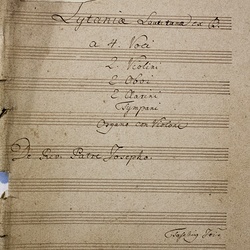 Lytaniæ Lauretanæ ex D.
a 4. Voci
2. Violini
2. Oboi
2. Clarini
Tympani
Organo con Violone
De Rev: Patre Josepho